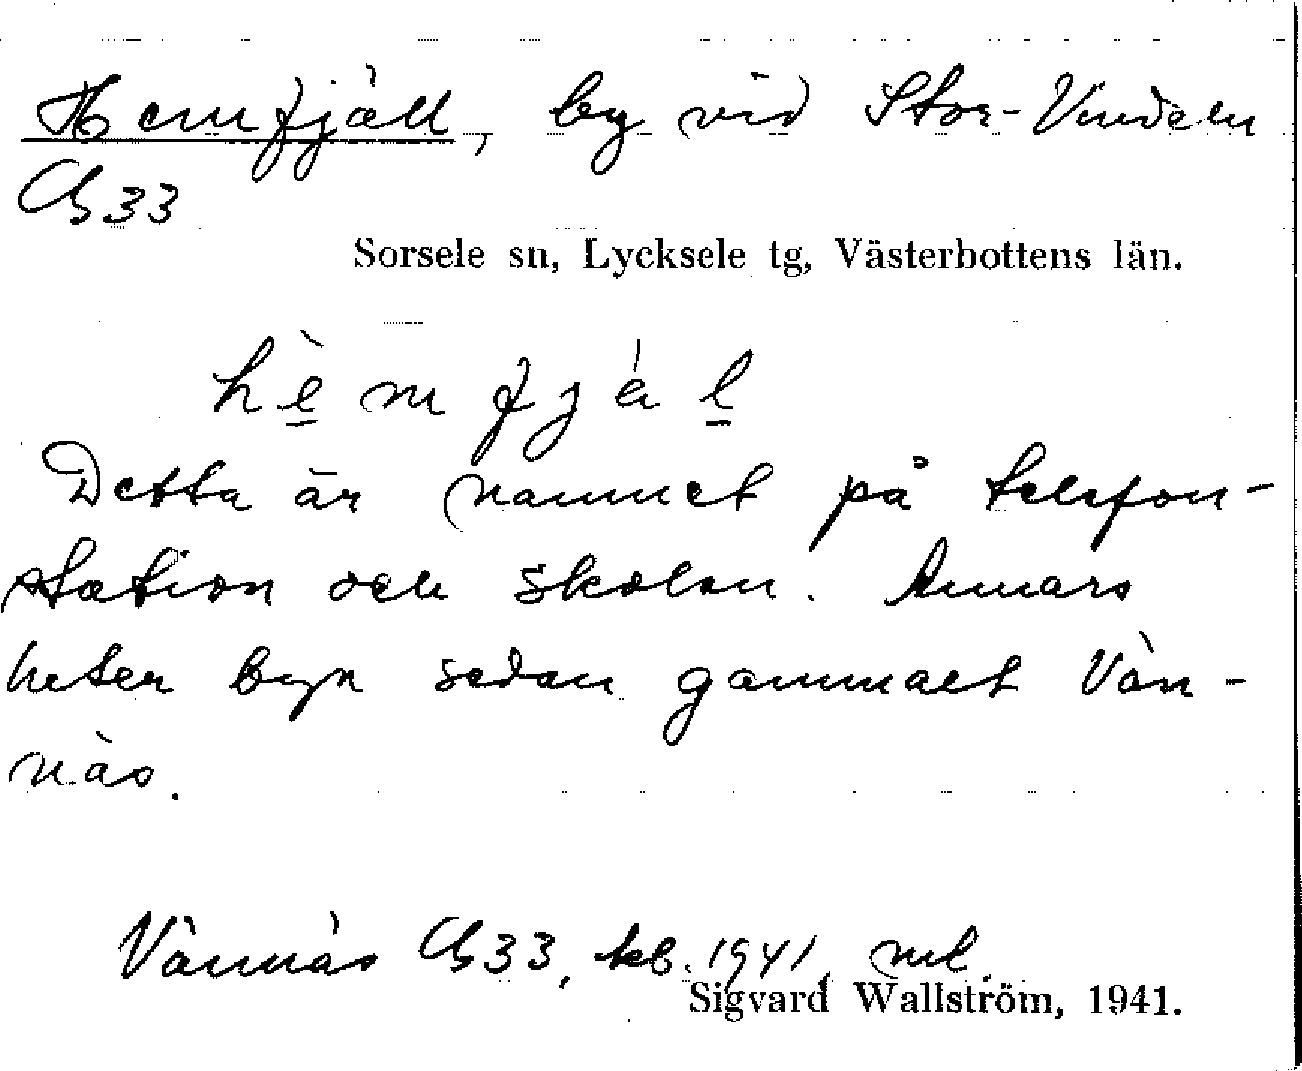 Hemfjäll, by vid Stor-Vindeln
G 33
Sorsele sn, Lycksele tg, Västerbottens län.
h è m f j ä́ l
Detta är namnet på telefon-
station och skolan. Annars
heter byn sedan gammalt Vän-
näs.
Vännäs G 33, kb. 1941, ml.
Sigvard Wallström, 1941.